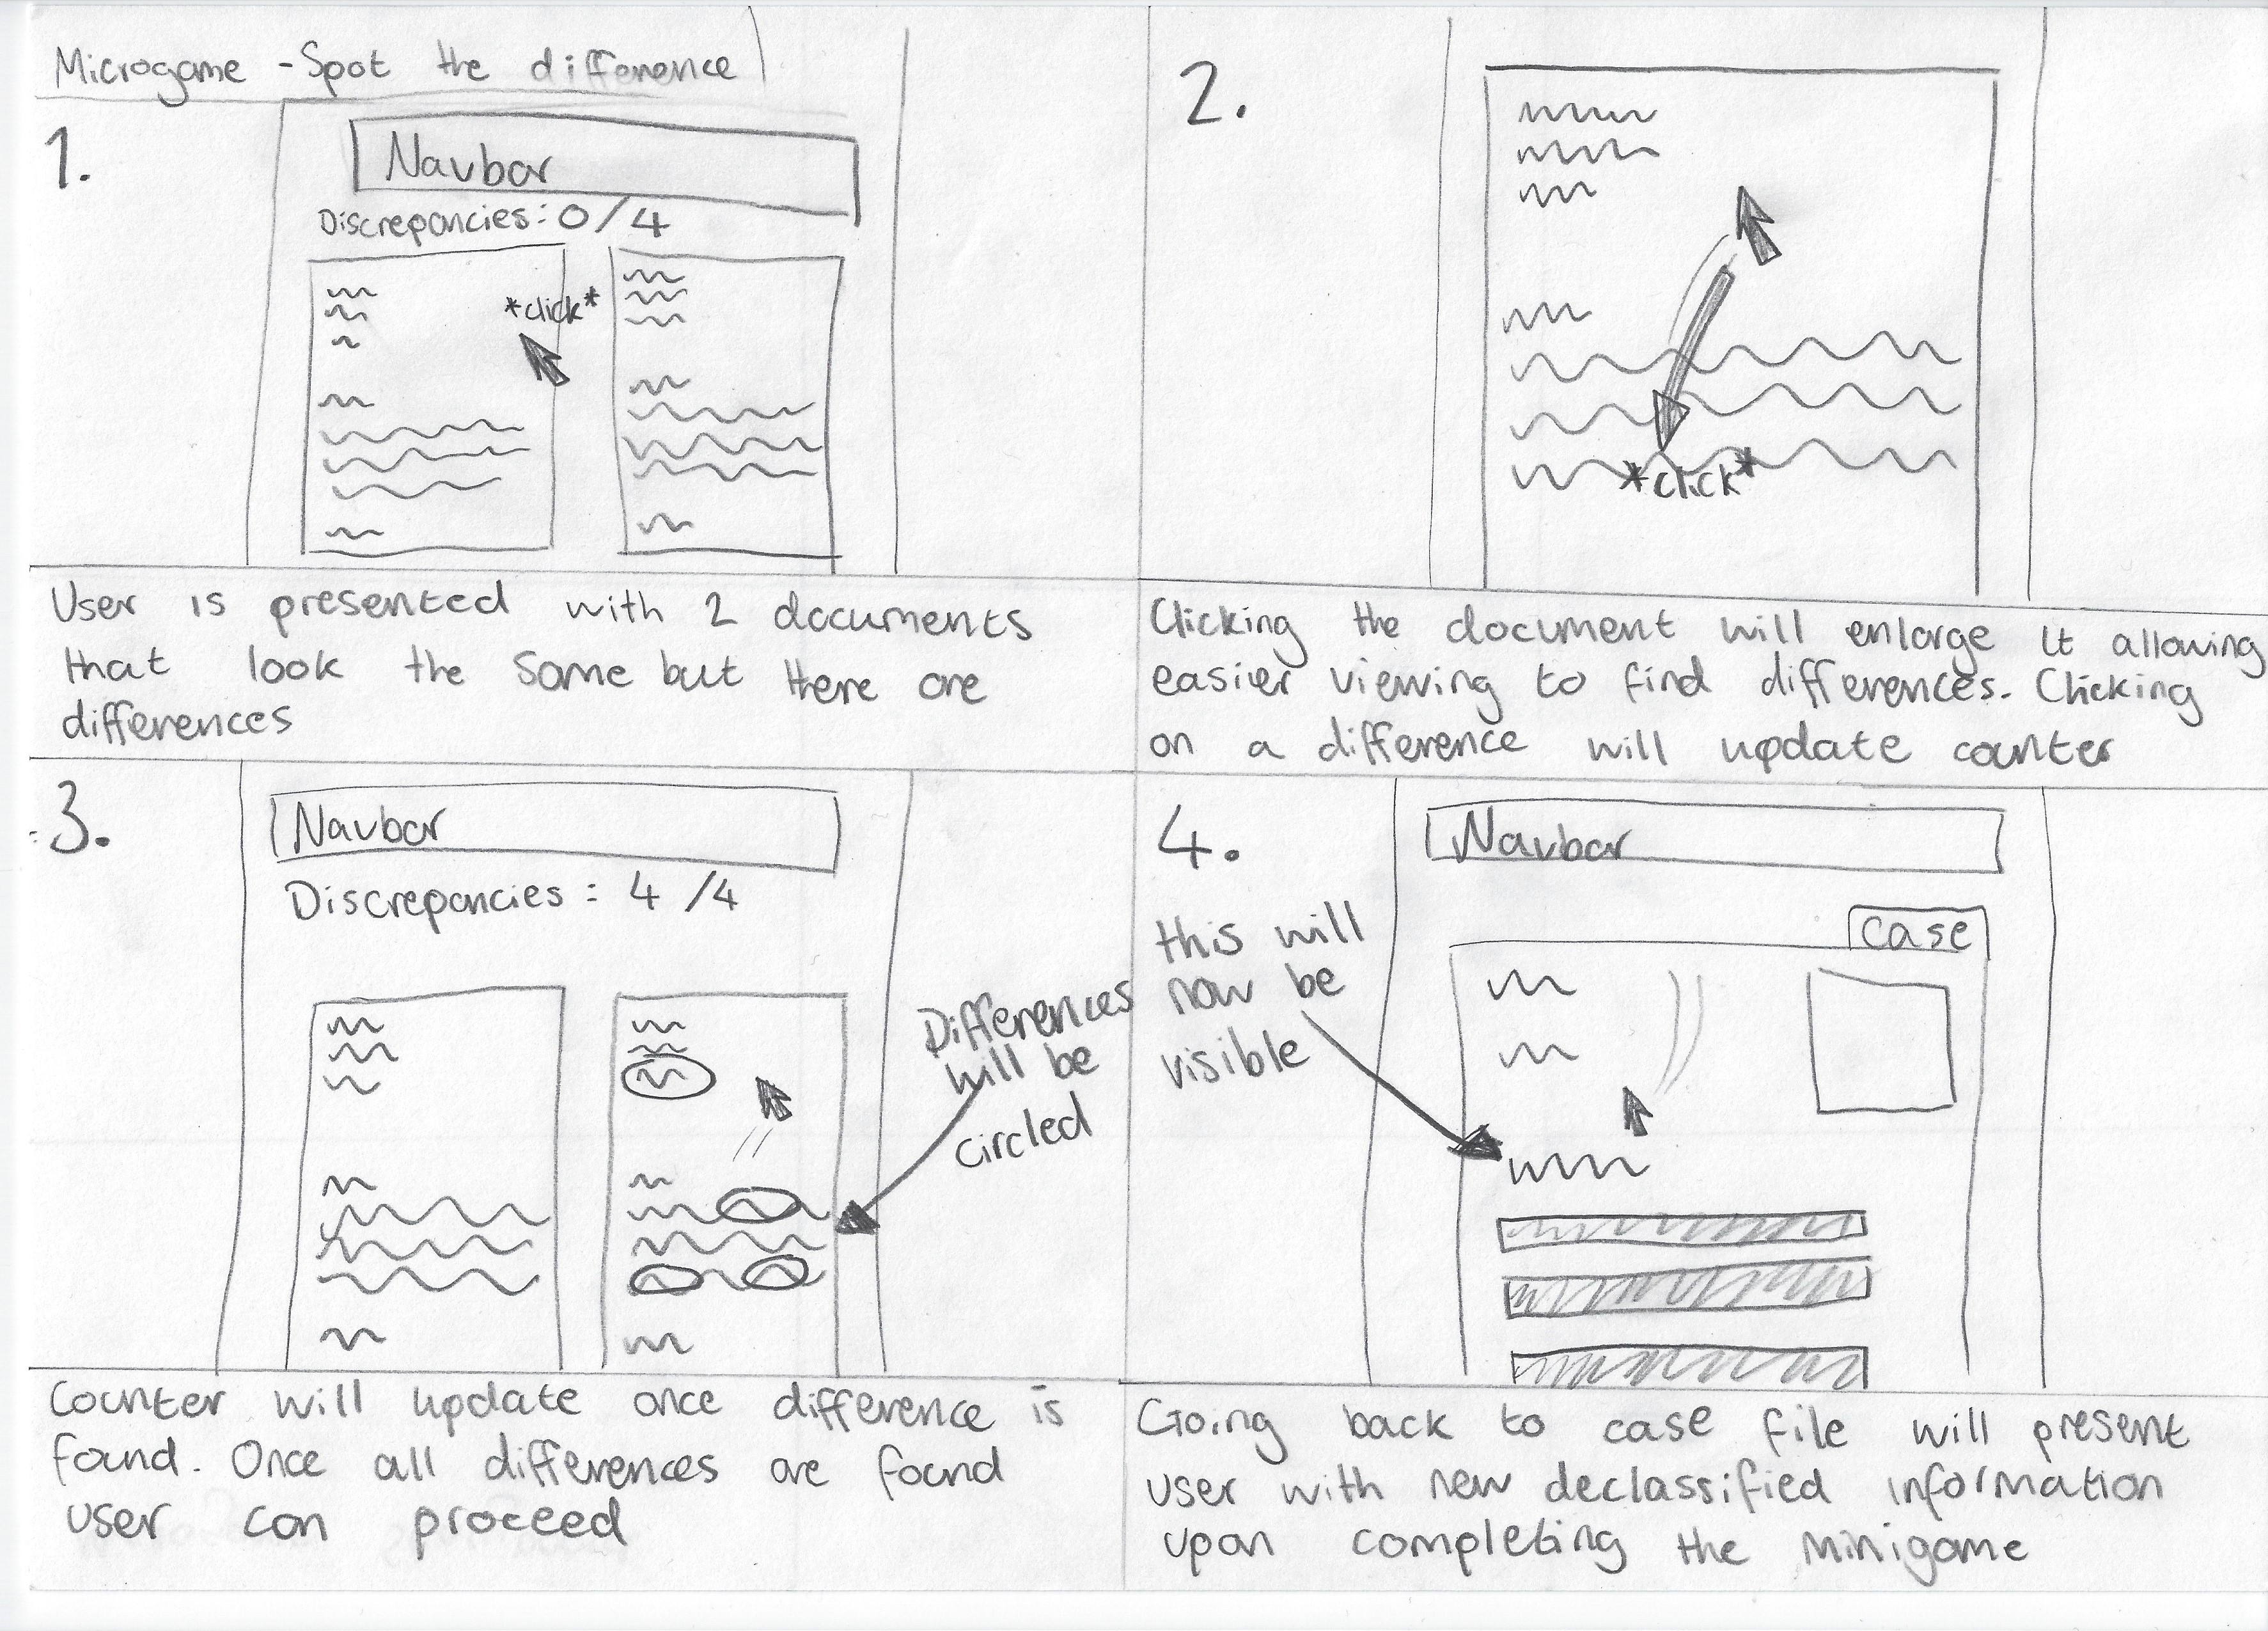 Microgame - Spot the difference
1.
Navbar
Discrepancies: 0/4
*click*
User is presented with 2 documents
that look the same but there are
differences
2.
*click*
Clicking the document will enlarge it allowing
easier viewing to find differences. Clicking
on a difference will update counter
3.
Navbar
Discrepancies: 4/4
Differences
will be
circled
Counter will update once difference is
found. Once all differences are found
user can proceed
4.
Navbar
case
this will
now be
visible
Going back to case file will present
user with new declassified information
upon completing the minigame